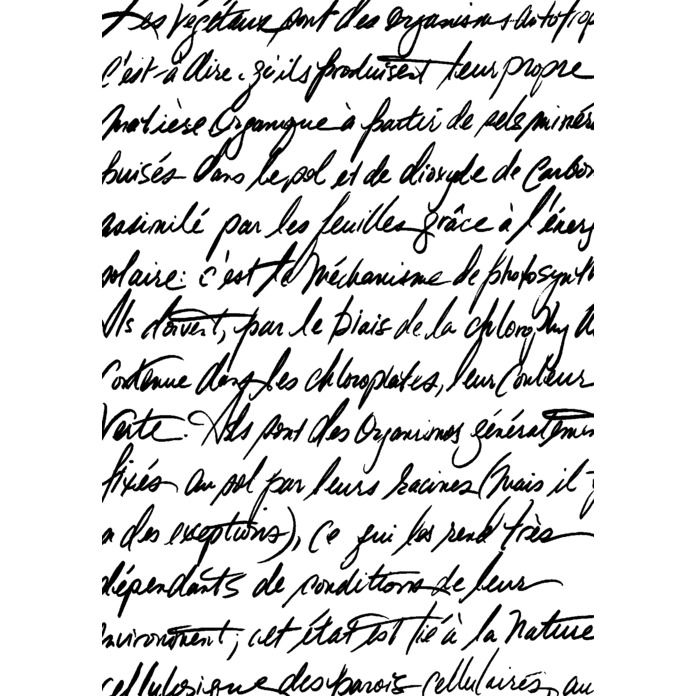 Les végétaux sont des organismes autotrop
C'est-à-dire. qu'ils produisent leur propre
matière organique à partir de sels minér
puisés dans le sol et de dioxyde de carbon
assimilé par les feuilles grâce à l'énerg
solaire: c'est le méchanisme de photosynth
Ils doivent, par le biais de la chlorophyll
Contenue dans les chloroplastes, leur couleur
Verte. Ils sont des organismes généralemen
fixés au sol par leurs racines (mais il y
a des exceptions), ce qui les rend très
dépendants de conditions de leur
environnement; cet état est lié à la Nature
cellulosique des parois cellulaires, au